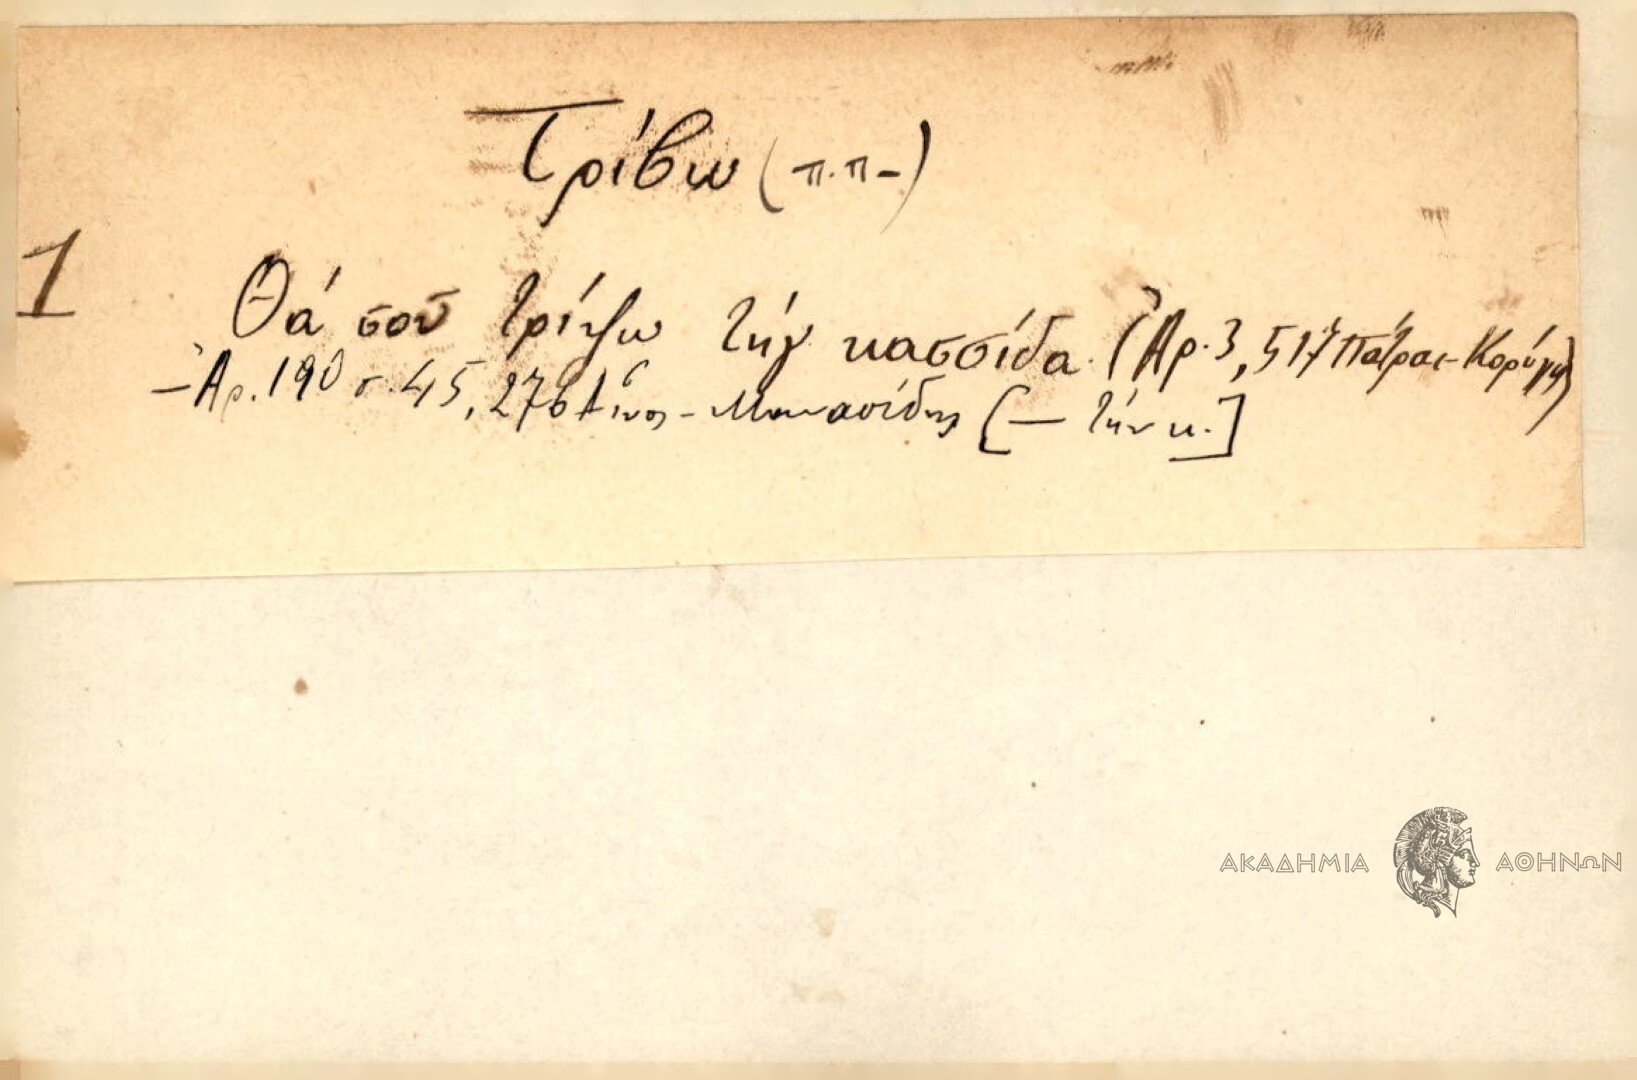 Τρίβω (π.π-)
1
Θά σου τρίψω τήν κασσίδα. (Ἀρ. 3, 517 Πάτραι - Κορύλλ)
- Ἀρ. 190 σ. 45, 276 Αἶνος - Μανασσίδης [— τήν κ.]
ΑΚΑΔΗΜΙΑ ΑΘΗΝΩΝ